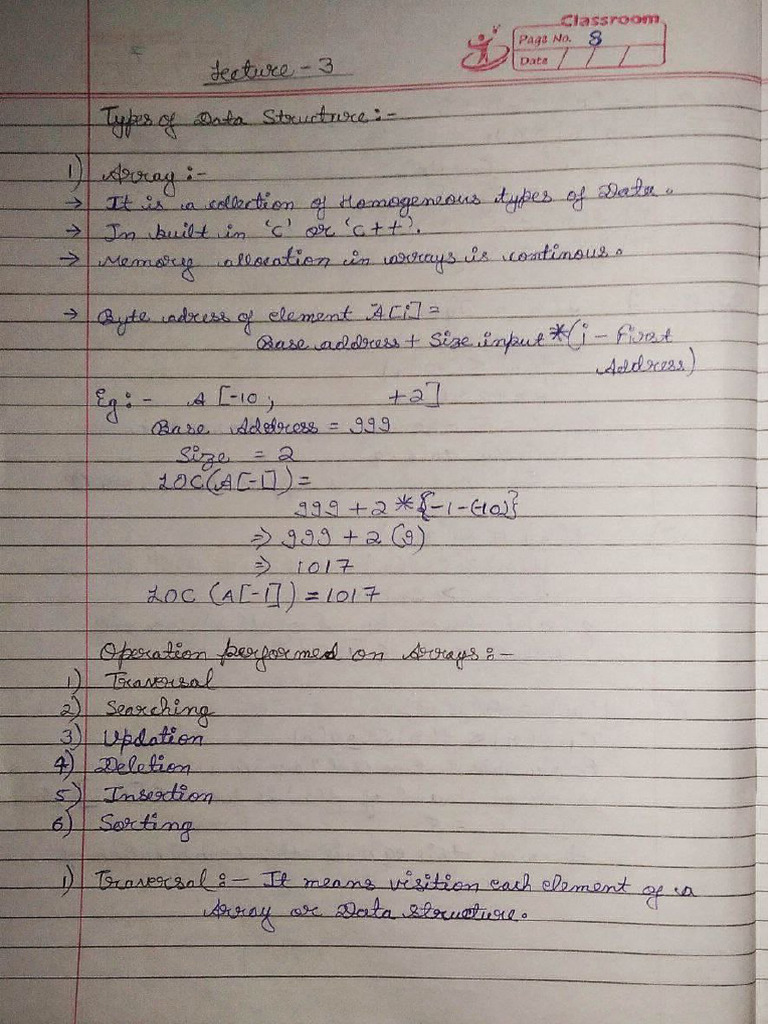 Classroom
Page No. 8
Date / / /
Lecture - 3
Types of Data Structure :-
1) Array :-
→ It is a collection of Homogeneous types of Data.
→ In built in 'C' or 'C++'.
→ Memory allocation in arrays is continous.
→ Byte adress of element A[i] =
Base address + Size input * (i - First
Address)
Eg :- A [-10, +2]
Base Address = 999
Size = 2
LOC(A[-1]) =
999 + 2 * {-1-(-10)}
⇒ 999 + 2 (9)
⇒ 1017
LOC (A[-1]) = 1017
Operation performed on Arrays :-
1) Traversal
2) Searching
3) Updation
4) Deletion
5) Insertion
6) Sorting
1) Traversal :- It means visition each element of a
Array or Data structure.